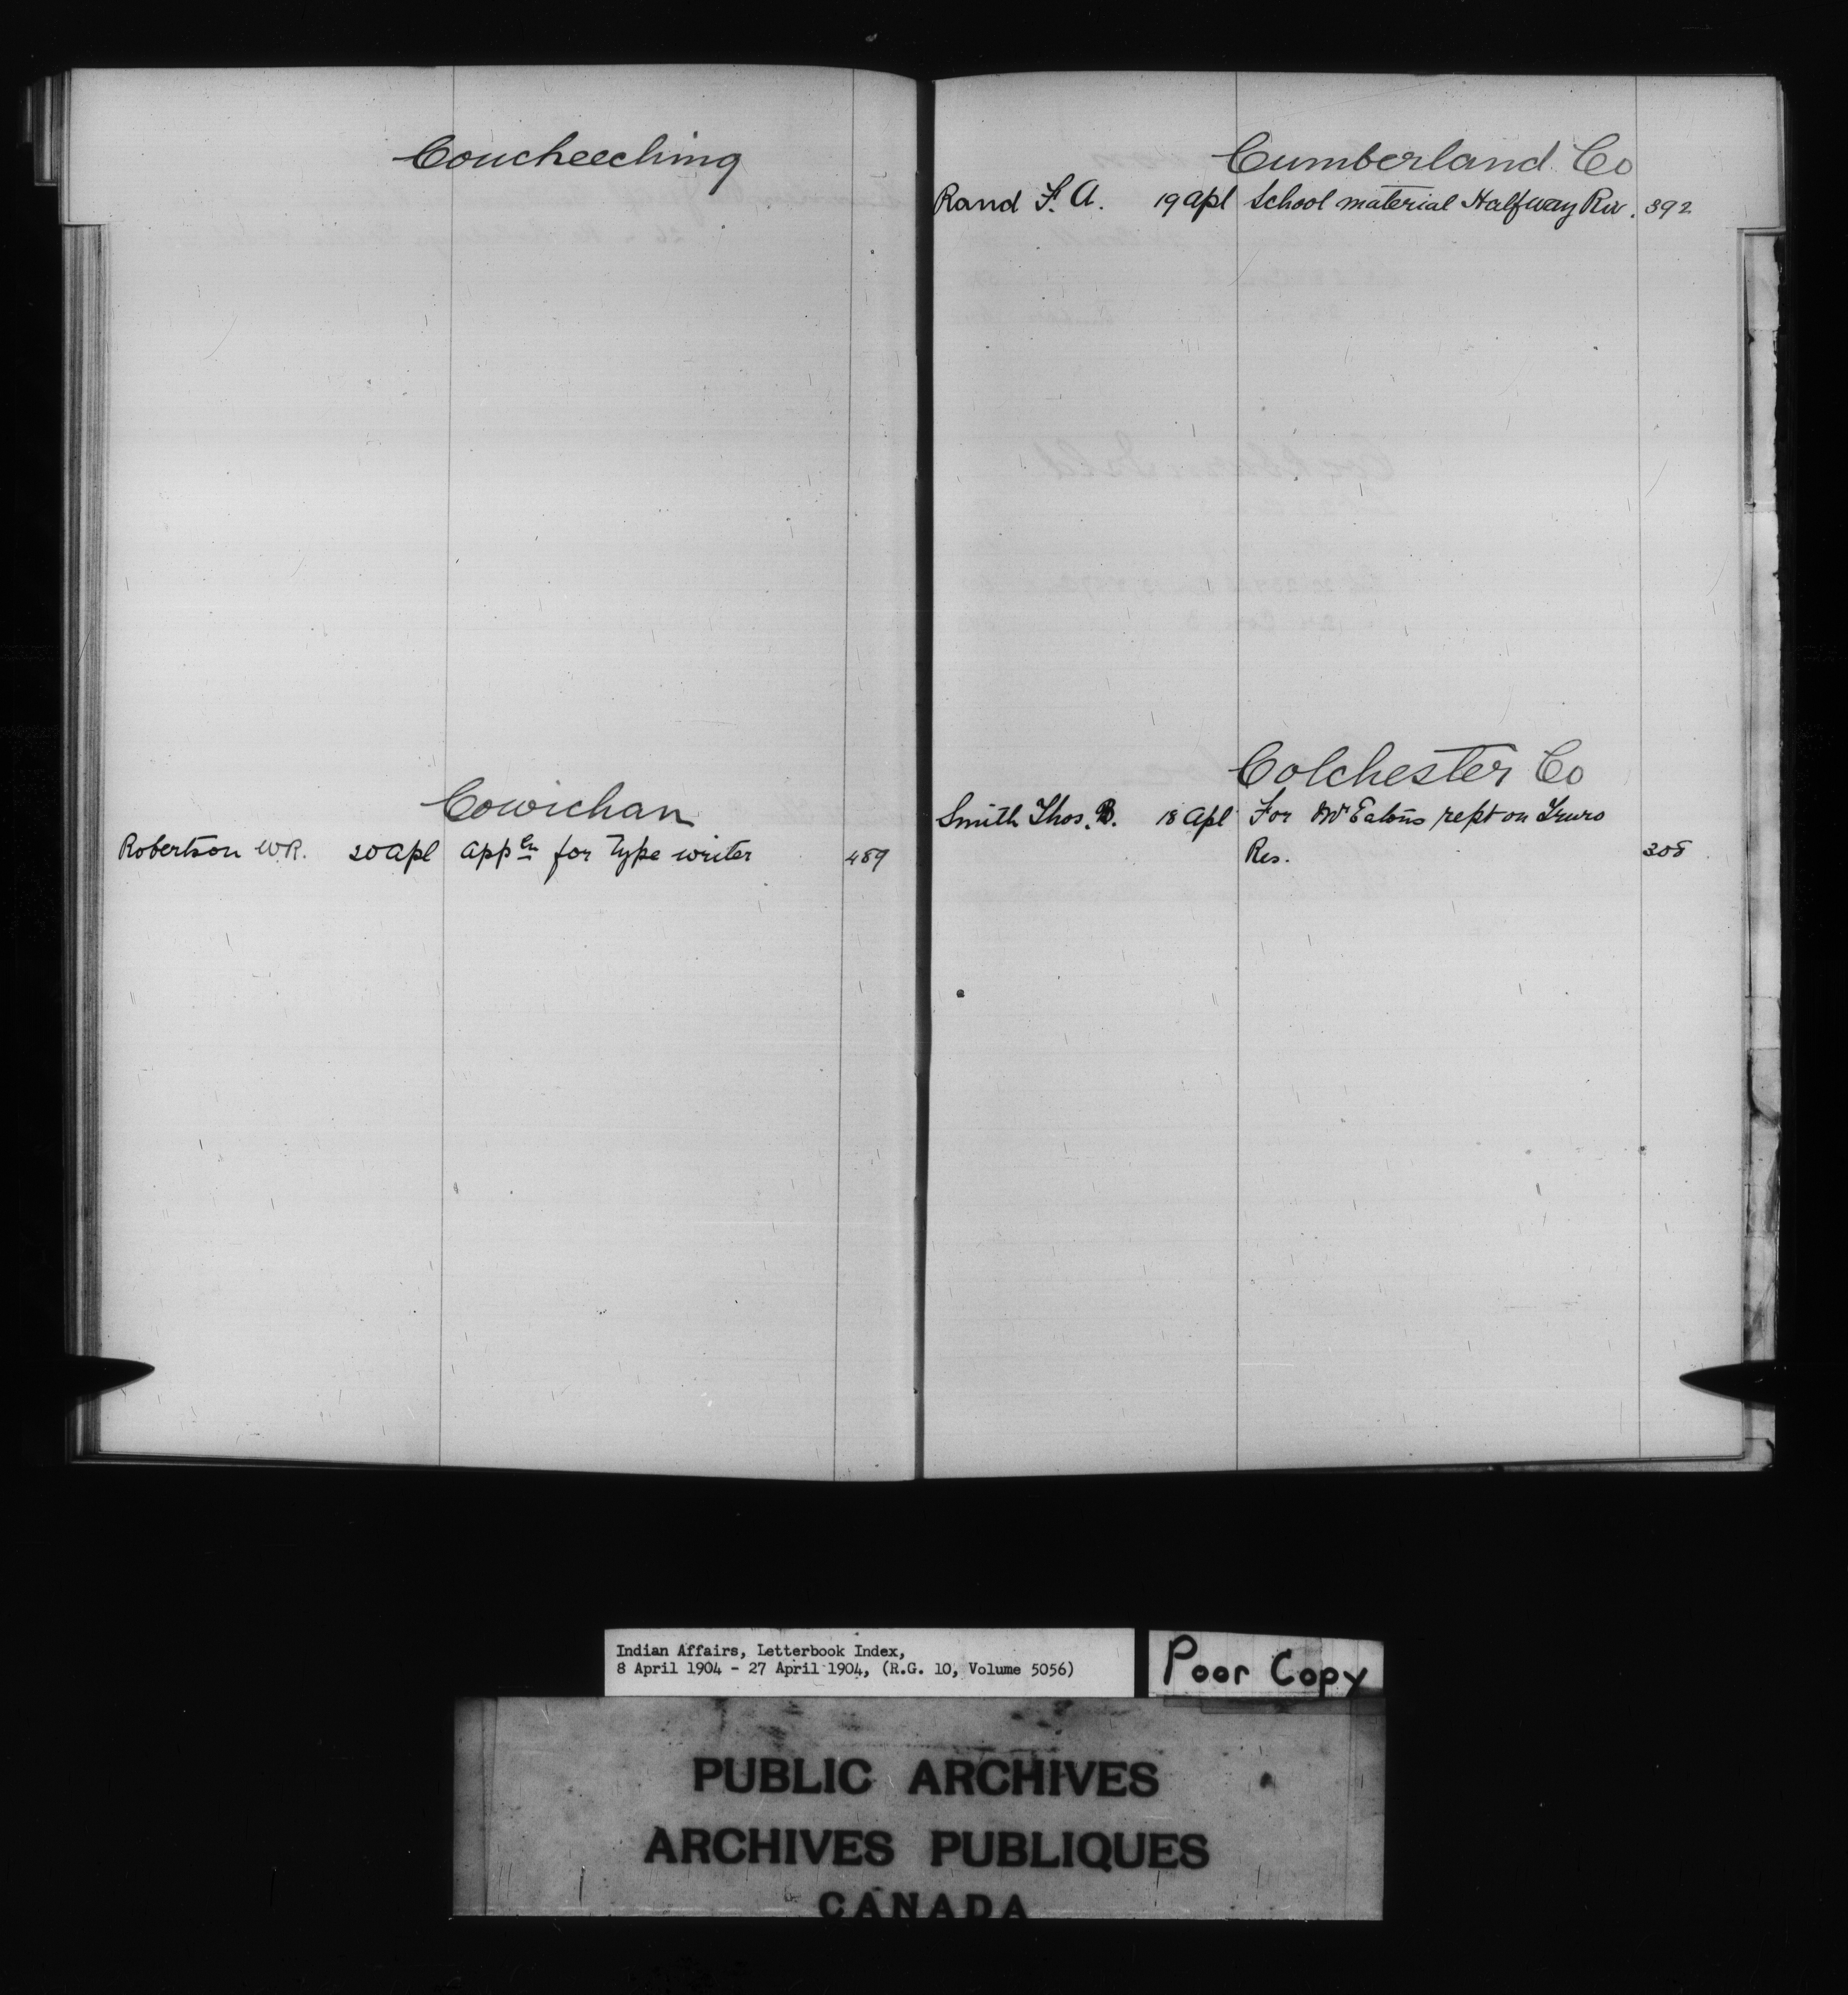 Coucheeching
Cowichan
Robertson W.R. 20 Apl Appln for Type writer 489
Cumberland Co
Rand F. A. 19 Apl School material Halfway Riv. 392
Colchester Co
Smith Thos. B. 18 Apl For Mr Eatons rept on Truro
Res. 308
Indian Affairs, Letterbook Index,
8 April 1904 - 27 April 1904, (R.G. 10, Volume 5056)
Poor Copy
PUBLIC ARCHIVES
ARCHIVES PUBLIQUES
CANADA